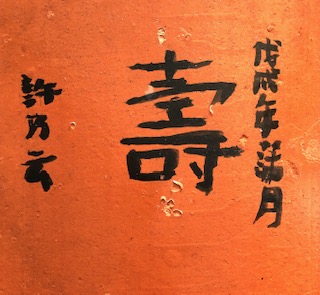 戊戌年月
壽
許乃云